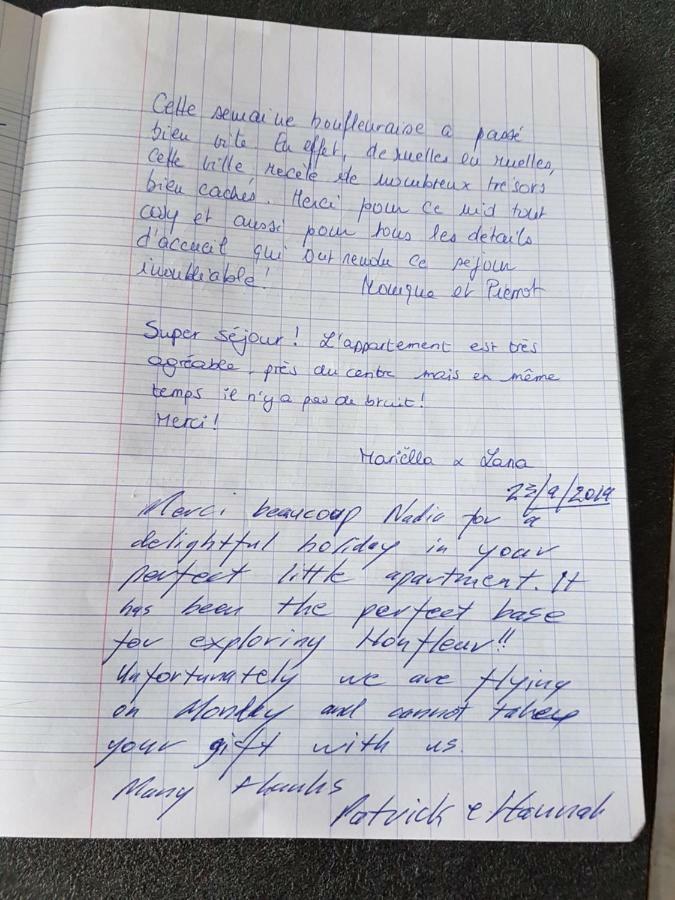 Cette semaine honfleuraise a passé
bien vite. En effet, de ruelles en ruelles,
cette ville recèle de nombreux trésors
bien cachés. Merci pour ce nid tout
cosy et aussi pour tous les détails
d'accueil qui ont rendu ce séjour
inoubliable!
Monique et Pierrot
Super séjour! L'appartement est très
agréable, près du centre mais en même
temps il n'y a pas de bruit!
Merci!
Mariëlla & Lana
23/9/2019
Merci beaucoup Nadia for a
delightful holiday in your
perfect little apartment. It
has been the perfect base
for exploring Honfleur!!
Unfortunately we are flying
on Monday and cannot take
your gift with us.
Many thanks
Patrick & Hannah